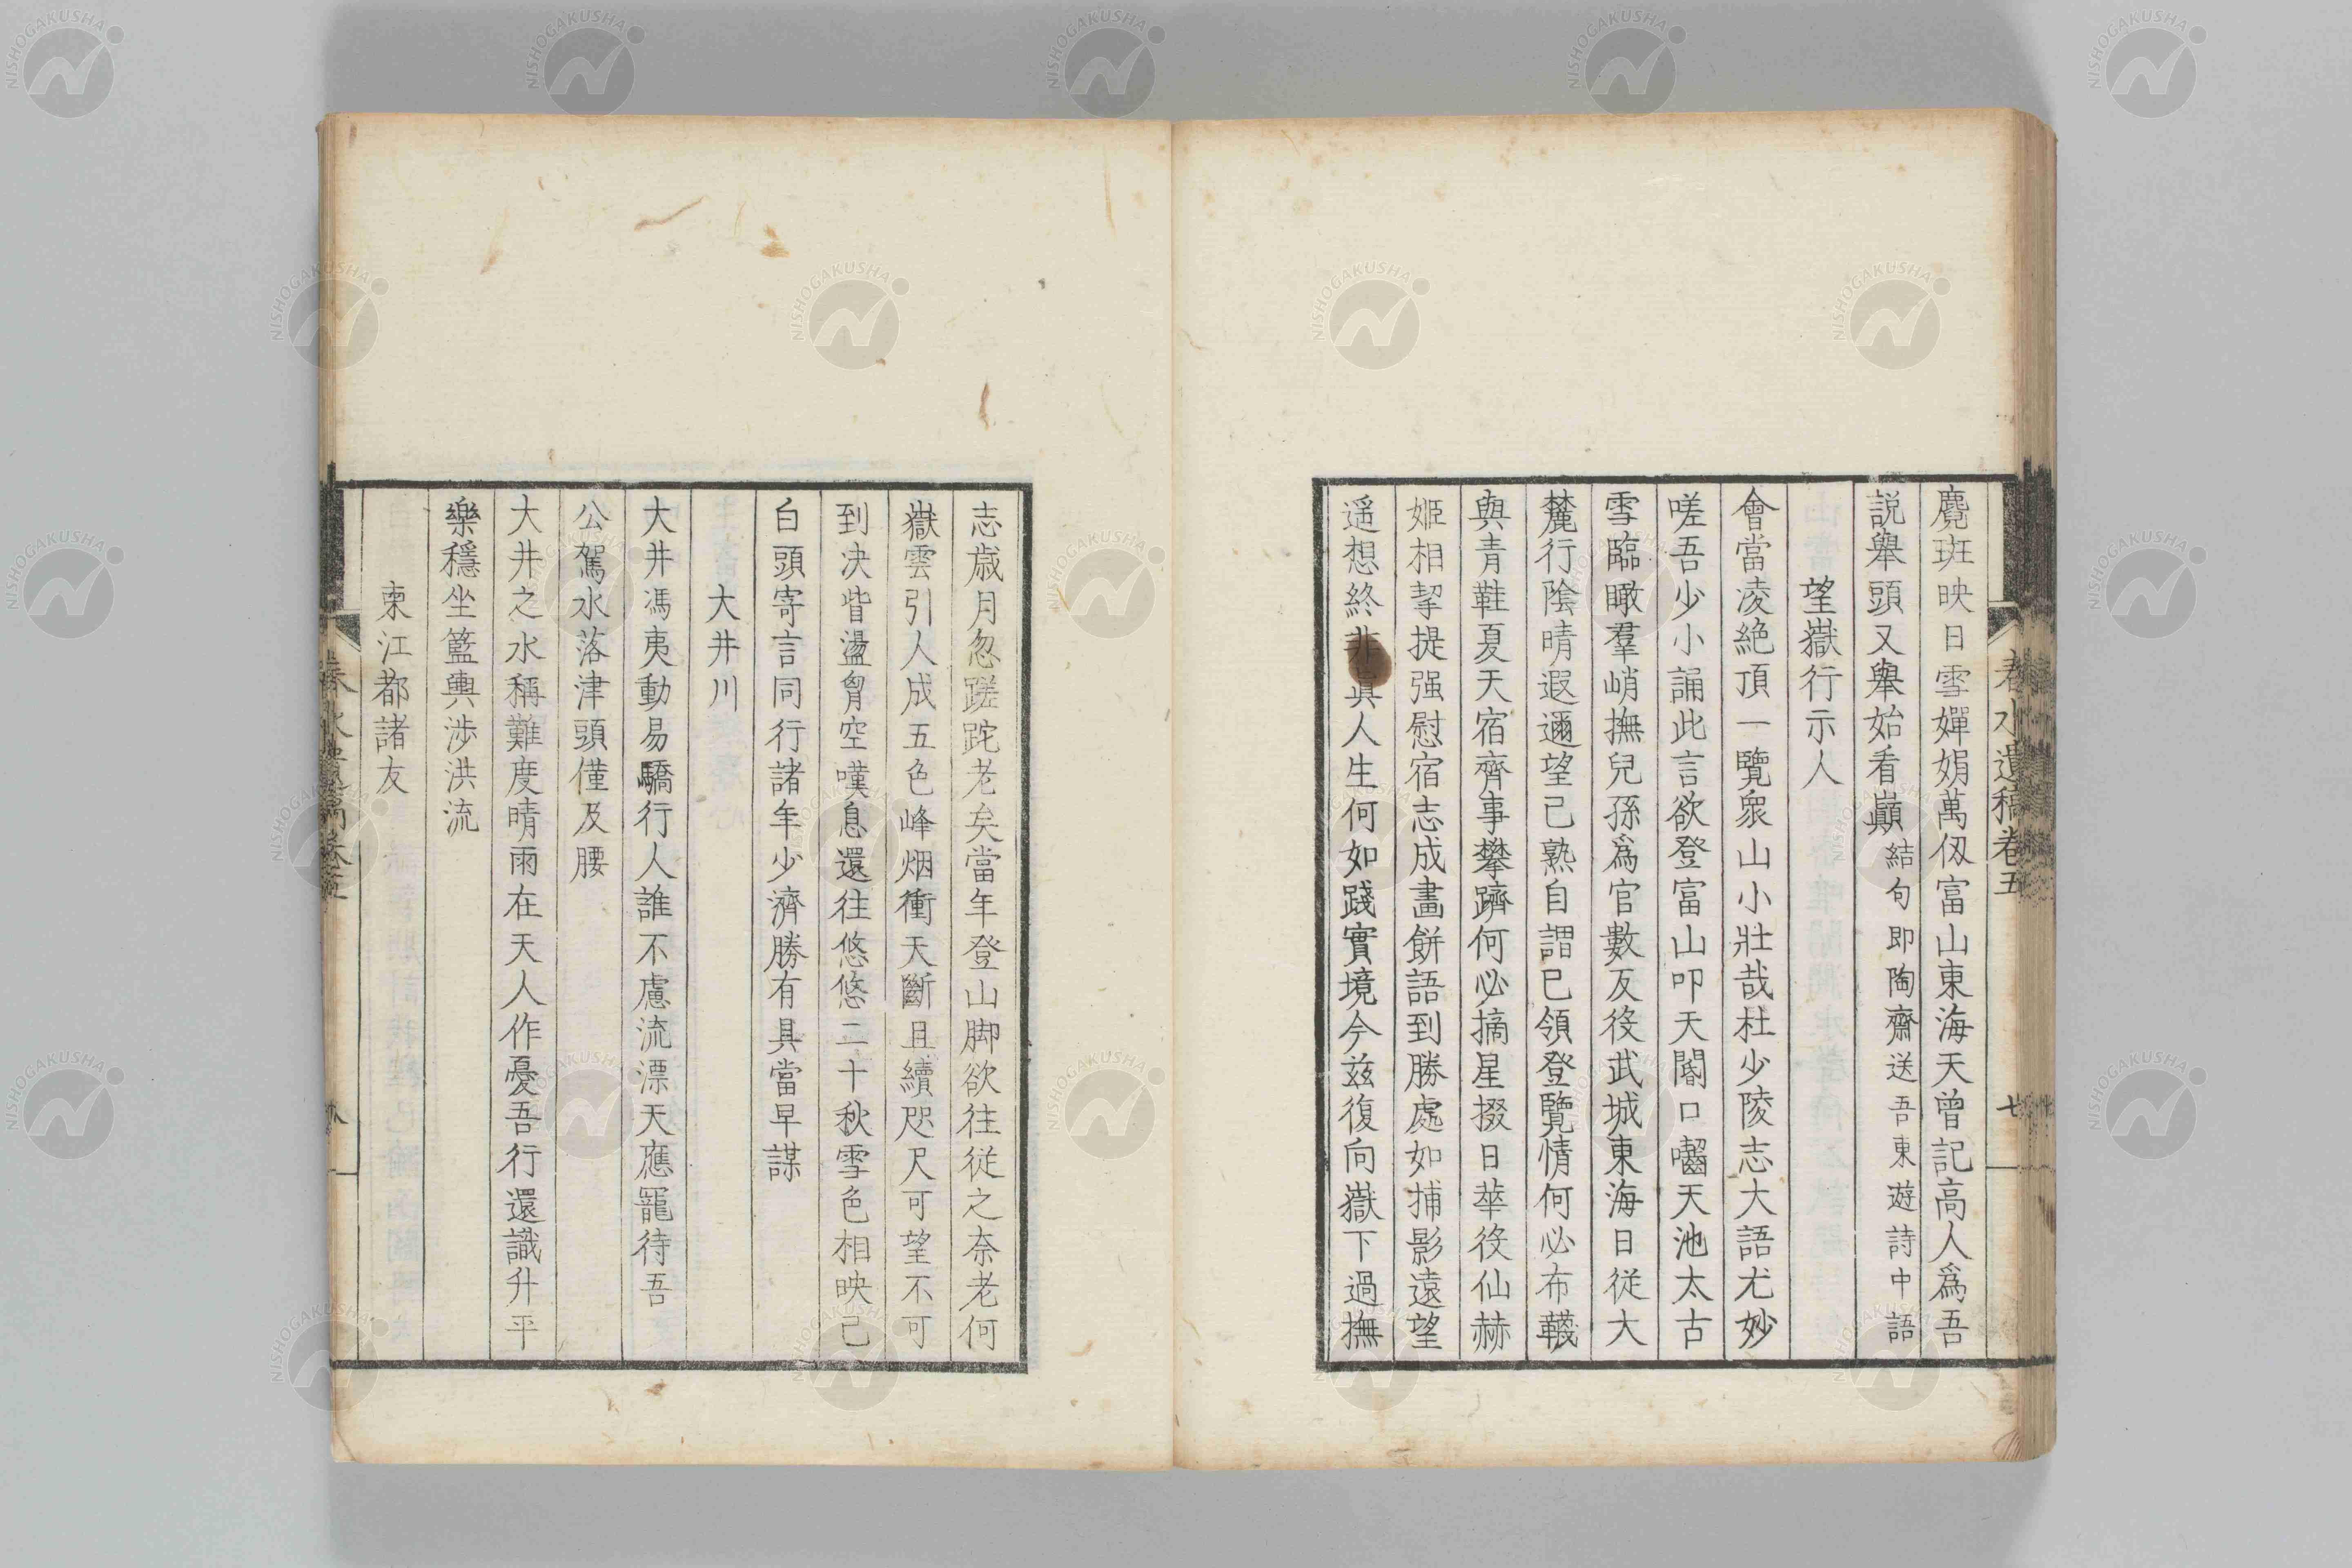 麑斑映日雪嬋娟萬仭富山東海天曾記高人爲吾
説舉頭又舉始看巓結句即陶齋送吾東遊詩中語
望嶽行示人
會當凌絶頂一覽衆山小壯哉杜少陵志大語尤妙
嗟吾少小誦此言欲登富山叩天閽口囓天池太古
雪臨瞰羣峭撫兒孫爲官數反役武城東海日從大
麓行陰晴遐邇望已熟自謂已領登覽情何必布韈
與青鞋夏天宿齊事攀躋何必摘星掇日華役仙赫
姫相挈提强慰宿志成畫餅語到勝處如捕影遠望
遥想終非眞人生何如踐實境今兹復向嶽下過撫
春水遺稿卷五
七
志歳月忽蹉跎老矣當年登山脚欲往從之奈老何
嶽雲引人成五色峰烟衝天斷且續咫尺可望不可
到决眥盪胷空嘆息還往悠悠二十秋雪色相映已
白頭寄言同行諸年少濟勝有具當早謀
大井川
大井馮夷動易驕行人誰不慮流漂天應寵待吾
公駕水落津頭僅及腰
大井之水稱難度晴雨在天人作憂吾行還識升平
樂穩坐籃輿渉洪流
柬江都諸友